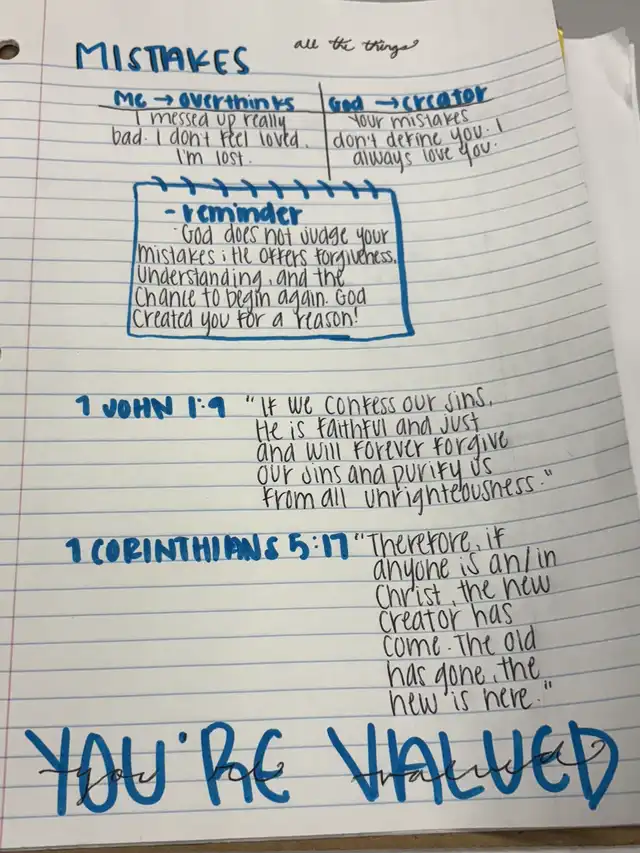 MISTAKES
all the things
Me → overthinks
I messed up really
bad. I don't feel loved.
I'm lost.
God → creator
Your mistakes
don't define you. I
always love you.
- reminder
God does not judge your
mistakes; He offers forgiveness,
understanding, and the
chance to begin again. God
created you for a reason!
1 JOHN 1:9
"If we confess our sins,
He is faithful and just
and will forever forgive
our sins and purify us
from all unrighteousness."
1 CORINTHIANS 5:17
"Therefore, if
anyone is an/in
Christ, the new
creator has
come. The old
has gone, the
new is here."
YOU'RE VALUED
you're valued